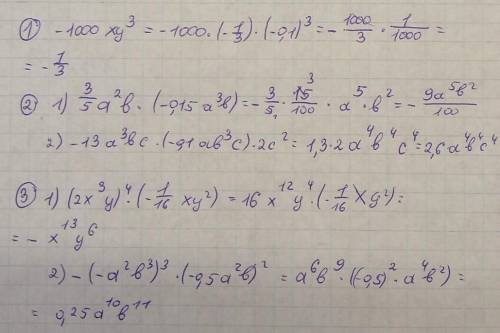 ① -1000 xy³ = -1000·(-1/3)·(-0,1)³ = -1000/3 · 1/1000 =
= -1/3
② 1) 3/5 a²b · (-0,15 a³b) = -3/5 · 15/100 · a⁵·b² = -9a⁵b²/100
3
2) -13a³bc · (-0,1 ab³c)·2c² = 1,3·2 a⁴b⁴c⁴ = 2,6a⁴b⁴c⁴
③ 1) (2x³y)⁴·(-1/16 xy²) = 16 x¹²y⁴·(-1/16 xy²) =
= -x¹³y⁶
2) -(-a²b³)³·(-0,5a²b)² = a⁶b⁹·((-0,5)²·a⁴b²) =
= 0,25a¹⁰b¹¹